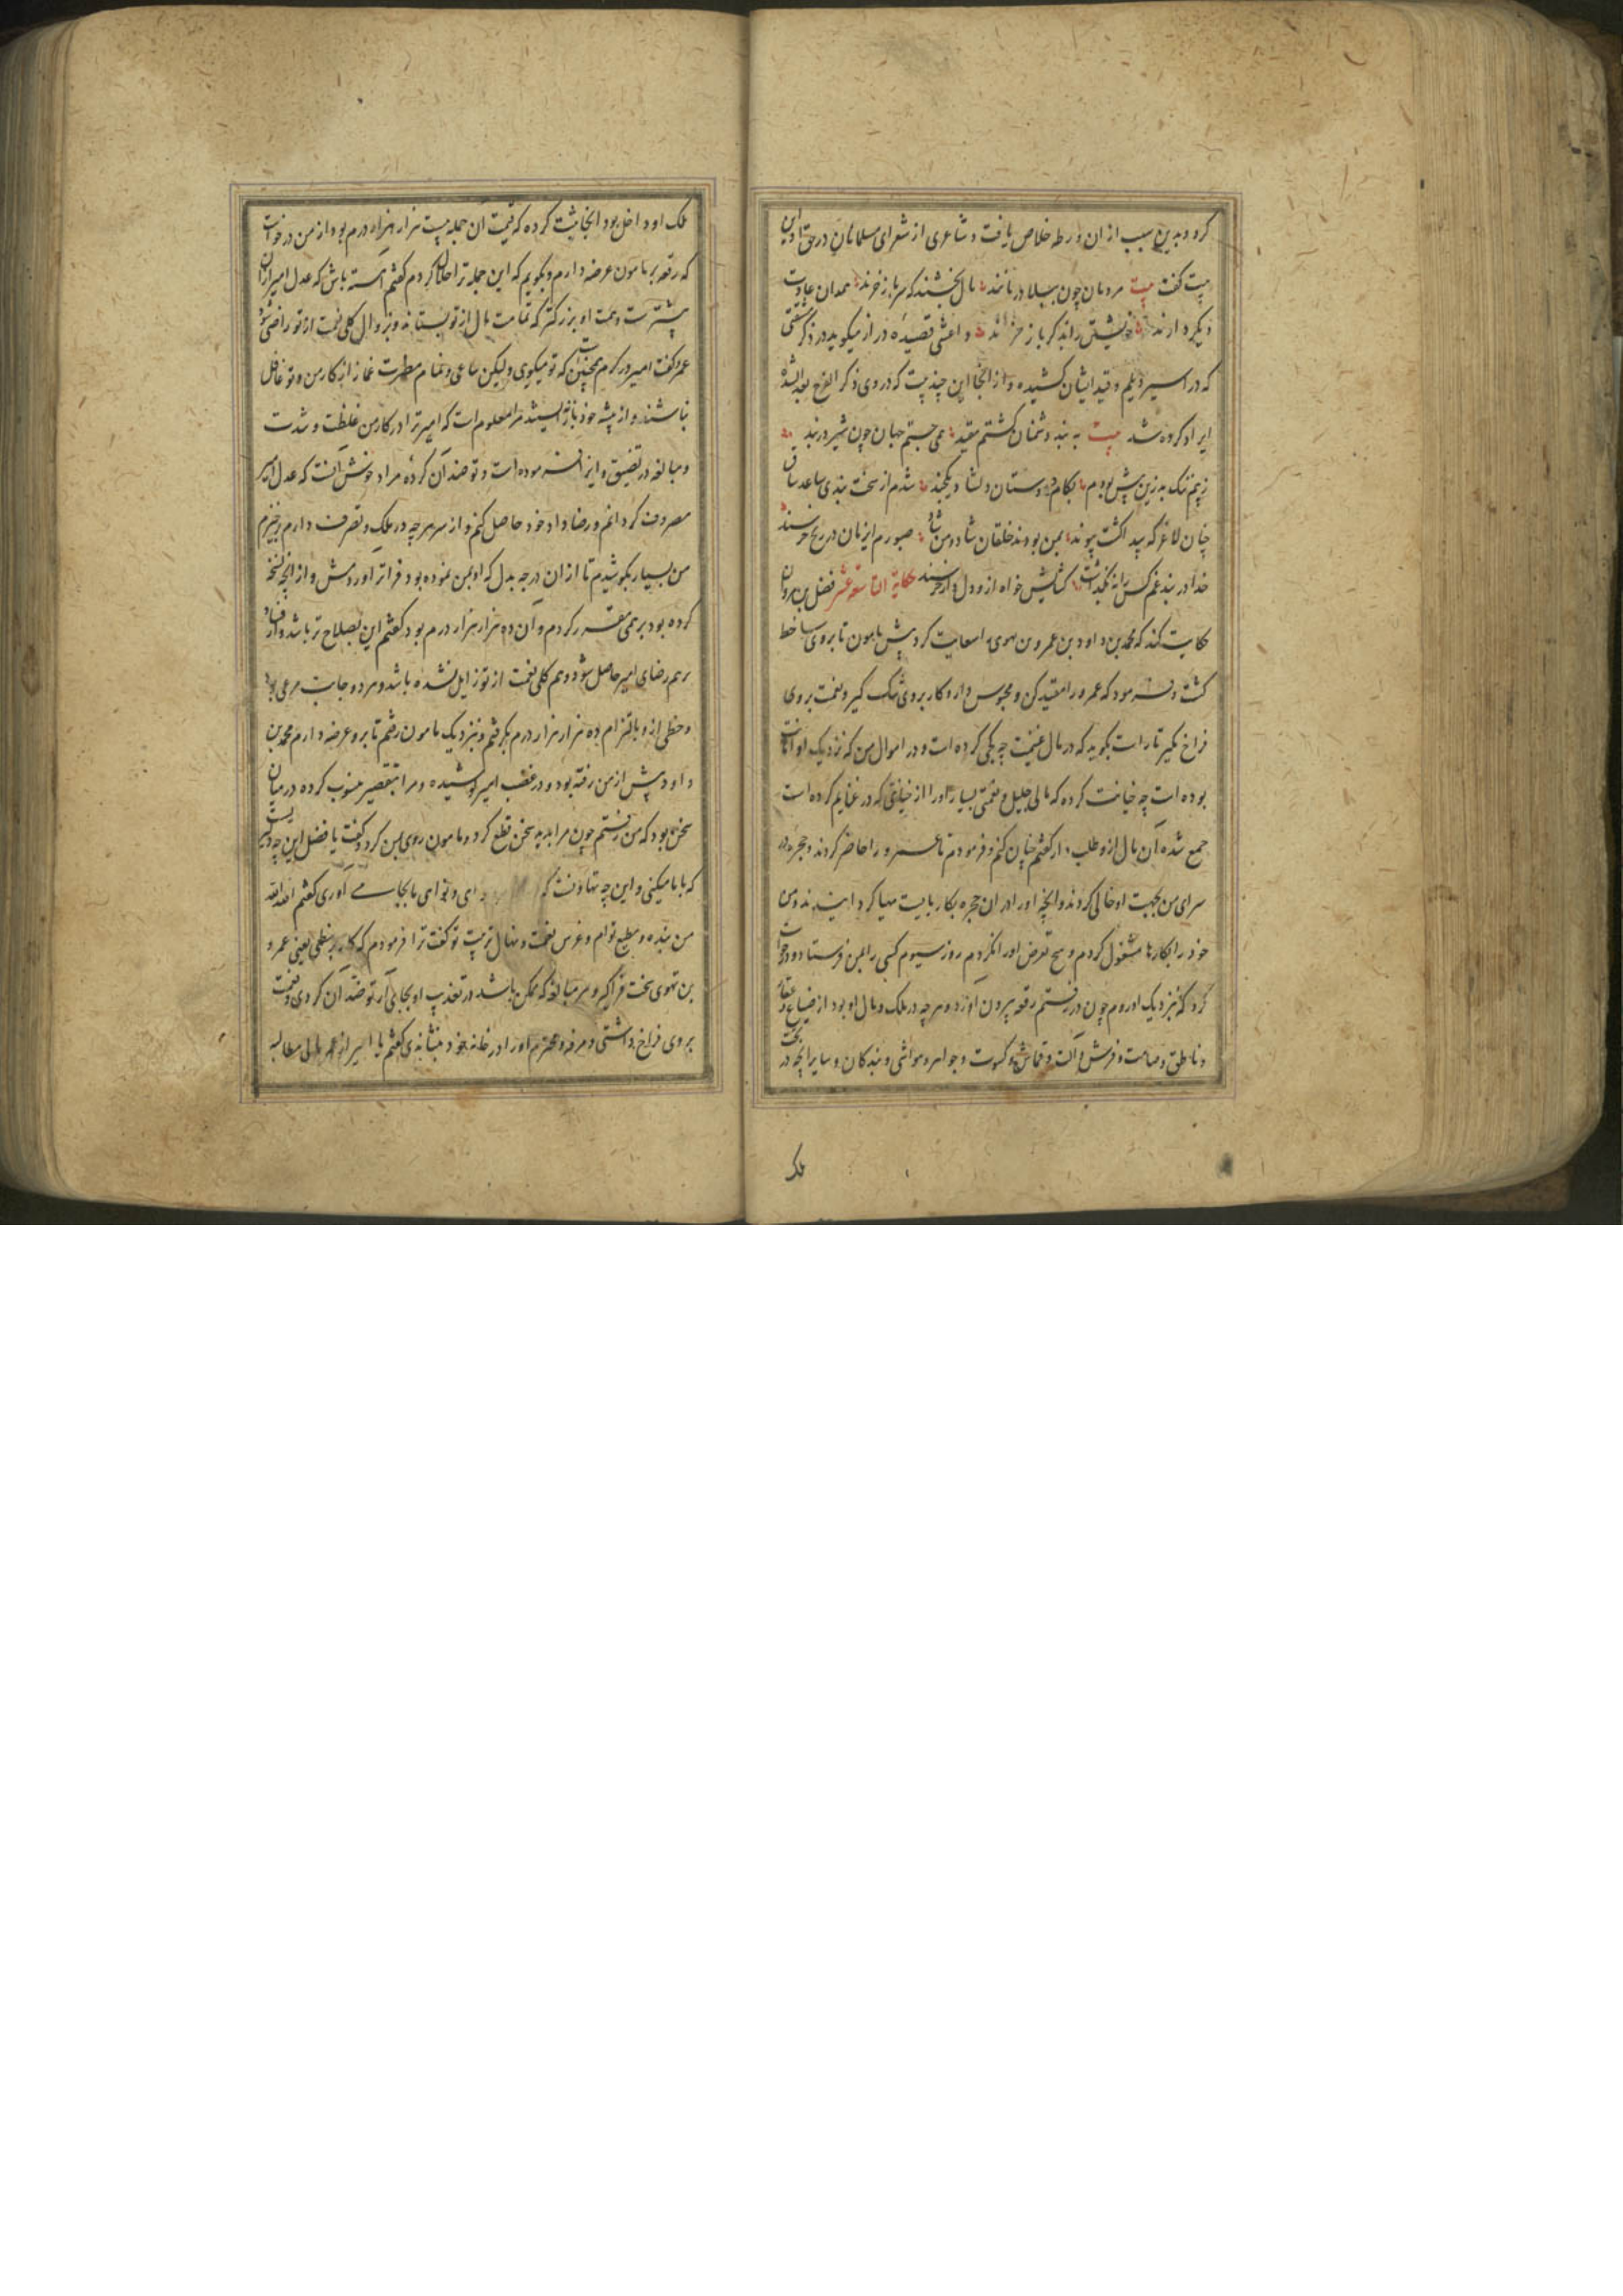 کرد و بدین سبب از ان ورطه خلاص یافت و شاعری از شعرای مسلمانان در حق او این
بیت گفت بیت مردمان چون ببلا درمانند مال بخشند که سر باز خرند همدان عادت
دیکر دارند خویشتن را بذکر باز خرند و اعشی قصیده دراز میکوید در ذکر
که در اسیر دیلم و قید ایشان کشیده و از انجا این چند بیت که در وی ذکر الفرج بعد الشدة
ایراد کرده شد بیت به بند دشمنان کشتم مقید همی جستم جهان چون شیر در بند
بکام دوستان دلشاد یکچند شدم از سخت بندی ساعد ساق
چنان لاغر که بید انکشت پیوند بمن بودند خلقان شاد و من شاد صبورم این زمان در رنج خرسند
خدا در بند غم کس را نه بگذاشت کشایش خواه ازو دل دار خرسند حکایة التاسعة عشر فضل بن مروان
حکایت کند که محمد بن داود بن عمرو بن نهوی را سعایت کرد پیش مامون تا بر وی ساخط
کشت و فرمود که عمرو را مقید کن و محبوس دار و کار بر وی تنک کیر و نعمت بر وی
فراخ مکیر تا راست بکوید که در مال غنیمت چه کرده است و در اموال من که نزدیک او امانت
بوده است چه خیانت کرده که مالی جلیل و نعمتی بسیار او را از خیانتی که در غنایم کرده است
جمع شده آن مال ازو طلب دار کفتم چنان کنم و فرمودم تا عمرو را حاضر کردند و حجره در
سرای من بجهت او خالی کردند و انچه او را در ان حجره بکار بایست مهیا کردانیدند و من
خود را بکارها مشغول کردم و هیچ تعرض او را نکردم روز سیوم کسی را بمن فرستاد و درخواست
کرد که نزدیک او روم چون در رفتم رقعه بیرون اورد و هر چه در ملک و مال او بود از ضیاع و عقار
و ناطق و صامت و فرش و آلت و قماش و کسوت و جواهر و مواشی و بندکان و سایر انچه در تحت
ملک
ملک او داخل بود انجا ثبت کرده که قیمت آن جمله بیست هزار هزار درم بود از من درخواست
که رقعه بر مامون عرضه دارم و بکویم که این جمله ترا حلال کردم کفتم آهسته باش که عدل امیر ازان
بیشترست و همت او بزرکتر که تمامت مال از تو بستاند و بزوال کلی نعمت از تو راضی شود
عمرو کفت امیر در کرم همچنین است که تو میکوی ولیکن ساعی و نمام غماز از کار من و تو غافل
نباشند و از پیشه خود باز نه ایستند مرا معلوم است که امیر ترا در کار من غلظت و شدت
و مبالغه در تضییق و ایذا فرموده است و تو ضد آن کرده مراد خوش آنست که عدل امیر
مصروف کردانم و رضاء او خود حاصل کنم و از سر هر چه در ملک و تصرف دارم برخیزم
من بسیار بکوشیدم تا از ان درجه بدل که او بمن نموده بود فراتر اوردمش و از انچه نسخه
کرده بود بر نیمی مقرر کردم و آن ده هزار هزار درم بود کفتم این بصلاح تر باشد و از فساد
هم رضای امیر حاصل شود و هم کلی نعمت از تو زایل نشده باشد و هر دو جانب مرعی بود
و خطی ازو بالتزام ده هزار هزار درم بکرفتم و نزدیک مامون رفتم تا برو عرضه دارم محمد بن
داود پیش از من رفته بود و در غضب امیر کوشیده و مرا بتقصیر منسوب کرده در میان
سخن بود که من در رفتم چون مرا بدید سخن قطع کرد و مامون روی بمن کرد و کفت یا فضل این چیست
که با ما میکنی و این چه تهاونست که ما بجا می آوری کفتم الله الله
من بنده و مطیع توام و غرس نعمت و نهال تربیت تو کفت ترا فرمودم که کار بر نبطی یعنی عمرو
بن نهوی سخت فراکیر و هر مبالغه که ممکن باشد در تعذیب او بجای آر تو ضد آن کردی و نعمت
بر وی فراخ داشتی و مرفه و محترم او را در خانه خود بنشاندی کفتم یا امیر از عمرو مالی مطالبه